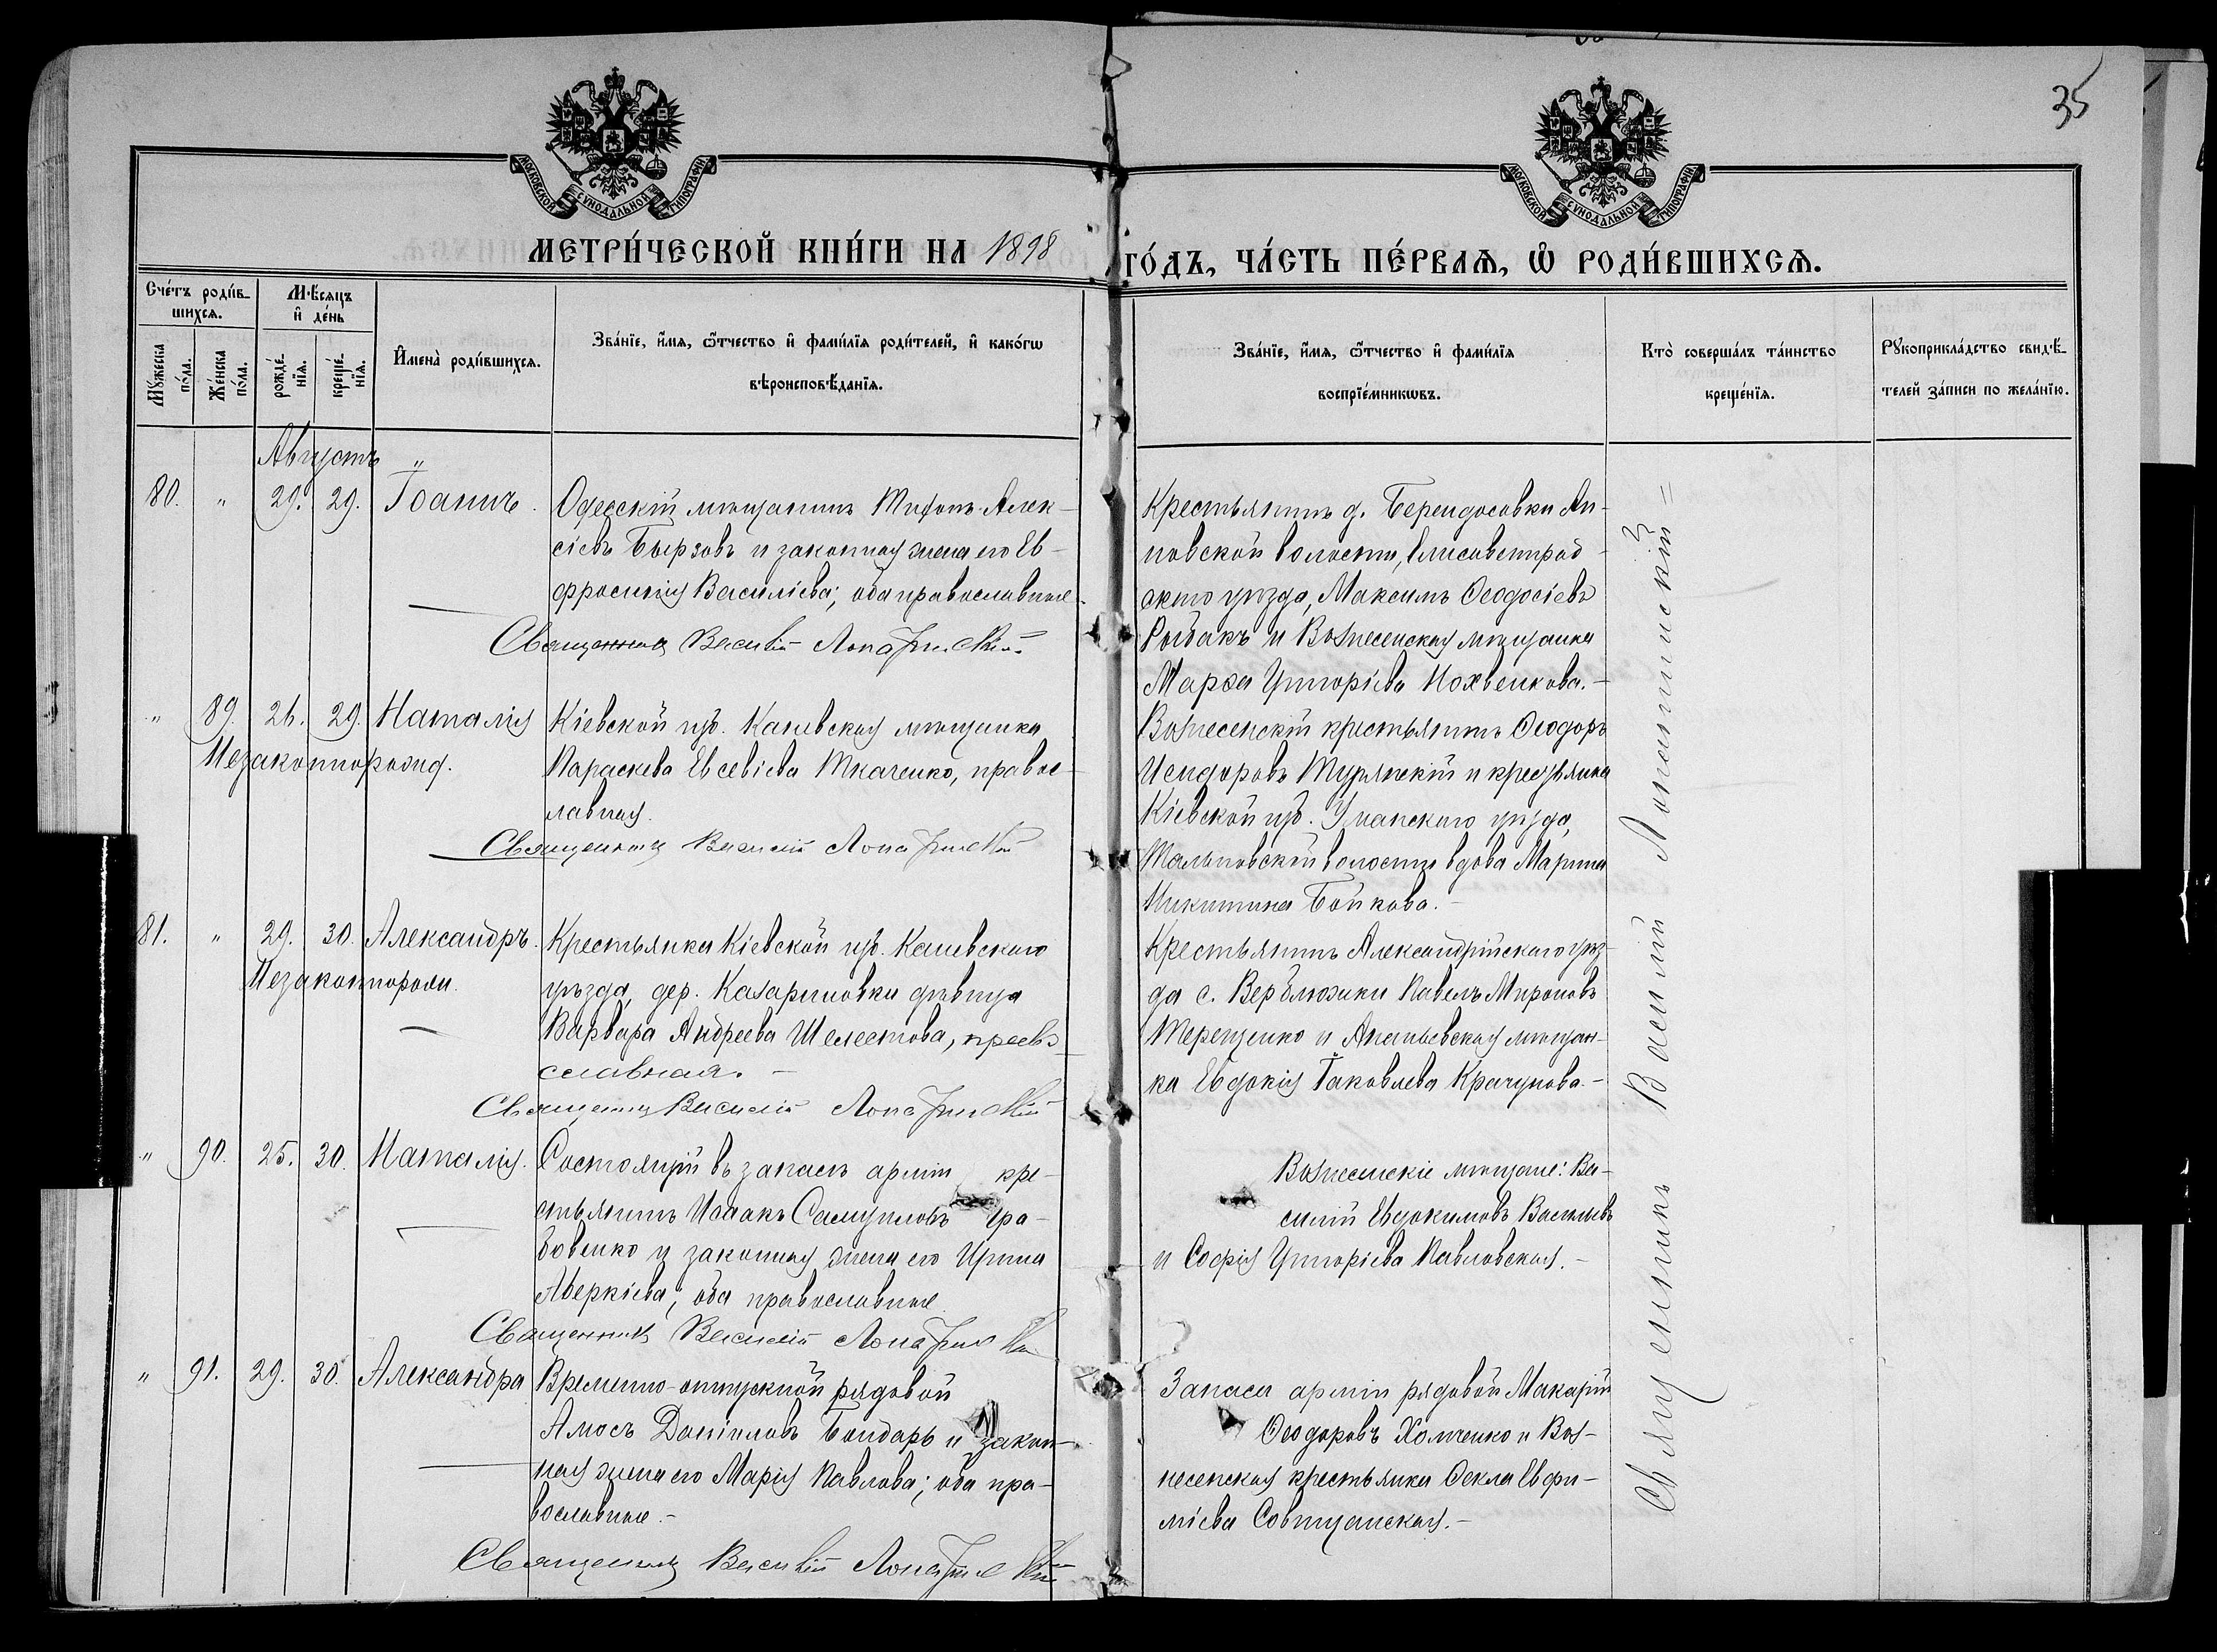 35
МОСКОВСКОЙ СѴНОДАЛЬНОЙ ТИПОГРАФІИ
МОСКОВСКОЙ СѴНОДАЛЬНОЙ ТИПОГРАФІИ
МЕТРИ́ЧЕСКОЙ КНИ́ГИ НА 1898 ГО́ДЪ, ЧА́СТЬ ПЕ́РВАѦ, Ѡ҆ РОДИ́ВШИХСѦ.
Сче́тъ роди́в-
шихсѧ.
Мꙋжеска
по́ла.
Же́нска
по́ла.
Мѣ́сѧцъ
и҆ де́нь
рожде́-
нїѧ.
креще́-
нїѧ.
И҆мена̀ роди́вшихсѧ.
Зва́нїе, и҆́мѧ, ѻ҆́тчество и҆ фами́лїѧ роди́телей, и҆ како́гѡ
вѣроисповѣ́данїѧ.
Зва́нїе, и҆́мѧ, ѻ҆́тчество и҆ фами́лїѧ
воспрїе́мникѡвъ.
Кто̀ соверша́лъ та́инство
креще́нїѧ.
Рꙋкоприкла́дство свидѣ́-
телей за́писи по жела́нїю.
Августъ "
80. " 29. 29. Іоаннъ.
Одесскій мѣщанинъ Тифонъ Алек-
сіевъ Бырзовъ и законная жена его Ев-
фросинія Василіева; оба православные.
Священникъ Василій Лопатинскій
Крестьянинъ д. Берендосовки Ан-
новской волости, Елисаветград-
скаго уѣзда, Максимъ Ѳеодосіевъ
Рыбакъ и Вознесенская мѣщанка
Марѳа Григоріева Нохвенкова.-
" 89. 26. 29. Наталія
Незаконнорожд.
Кіевской губ. Каневская мѣщанка
Параскева Евсевіева Ткаченко, правос-
лавная.
Священникъ Василій Лопатинскій
Вознесенскій крестьянинъ Ѳеодоръ
Исидоровъ Турянскій и крестьянка
Кіевской губ. Уманскаго уѣзда,
Тальновской волости вдова Марина
Никитина Бойкова.-
81. " 29. 30. Александръ.
Незаконнорожд.
Крестьянка Кіевской губ. Каневскаго
уѣзда, дер. Казариновки дѣвица
Варвара Андреева Шелестова, право-
славная.-
Священникъ Василій Лопатинскій
Крестьянинъ Александрійскаго уѣз-
да с. Верблюжки Павелъ Мироновъ
Терещенко и Ананьевская мѣщан-
ка Евдокія Іаковлева Крачунова.-
" 90. 25. 30. Наталія.
Состоящій въ запасѣ арміи кре-
стьянинъ Исаакъ Самуиловъ Гра-
бовенко и законная жена его Ирина
Аверкіева; оба православные.
Священникъ Василій Лопатинскій
Вознесенскіе мѣщане: Ва-
силій Евдокимовъ Васильевъ
и Софія Григоріева Павловская.-
" 91. 29. 30. Александра
Временно-отпускной рядовой
Амосъ Даніиловъ Бондарь и закон-
ная жена его Марія Павлова; оба пра-
вославные.-
Священникъ Василій Лопатинскій
Запаса арміи рядовой Макарій
Ѳеодоровъ Хомченко и Воз-
несенская крестьянка Ѳекла Евфи-
міева
Священникъ Василій Лопатинскій =